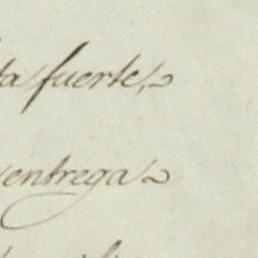 ta fuerte,
entrega